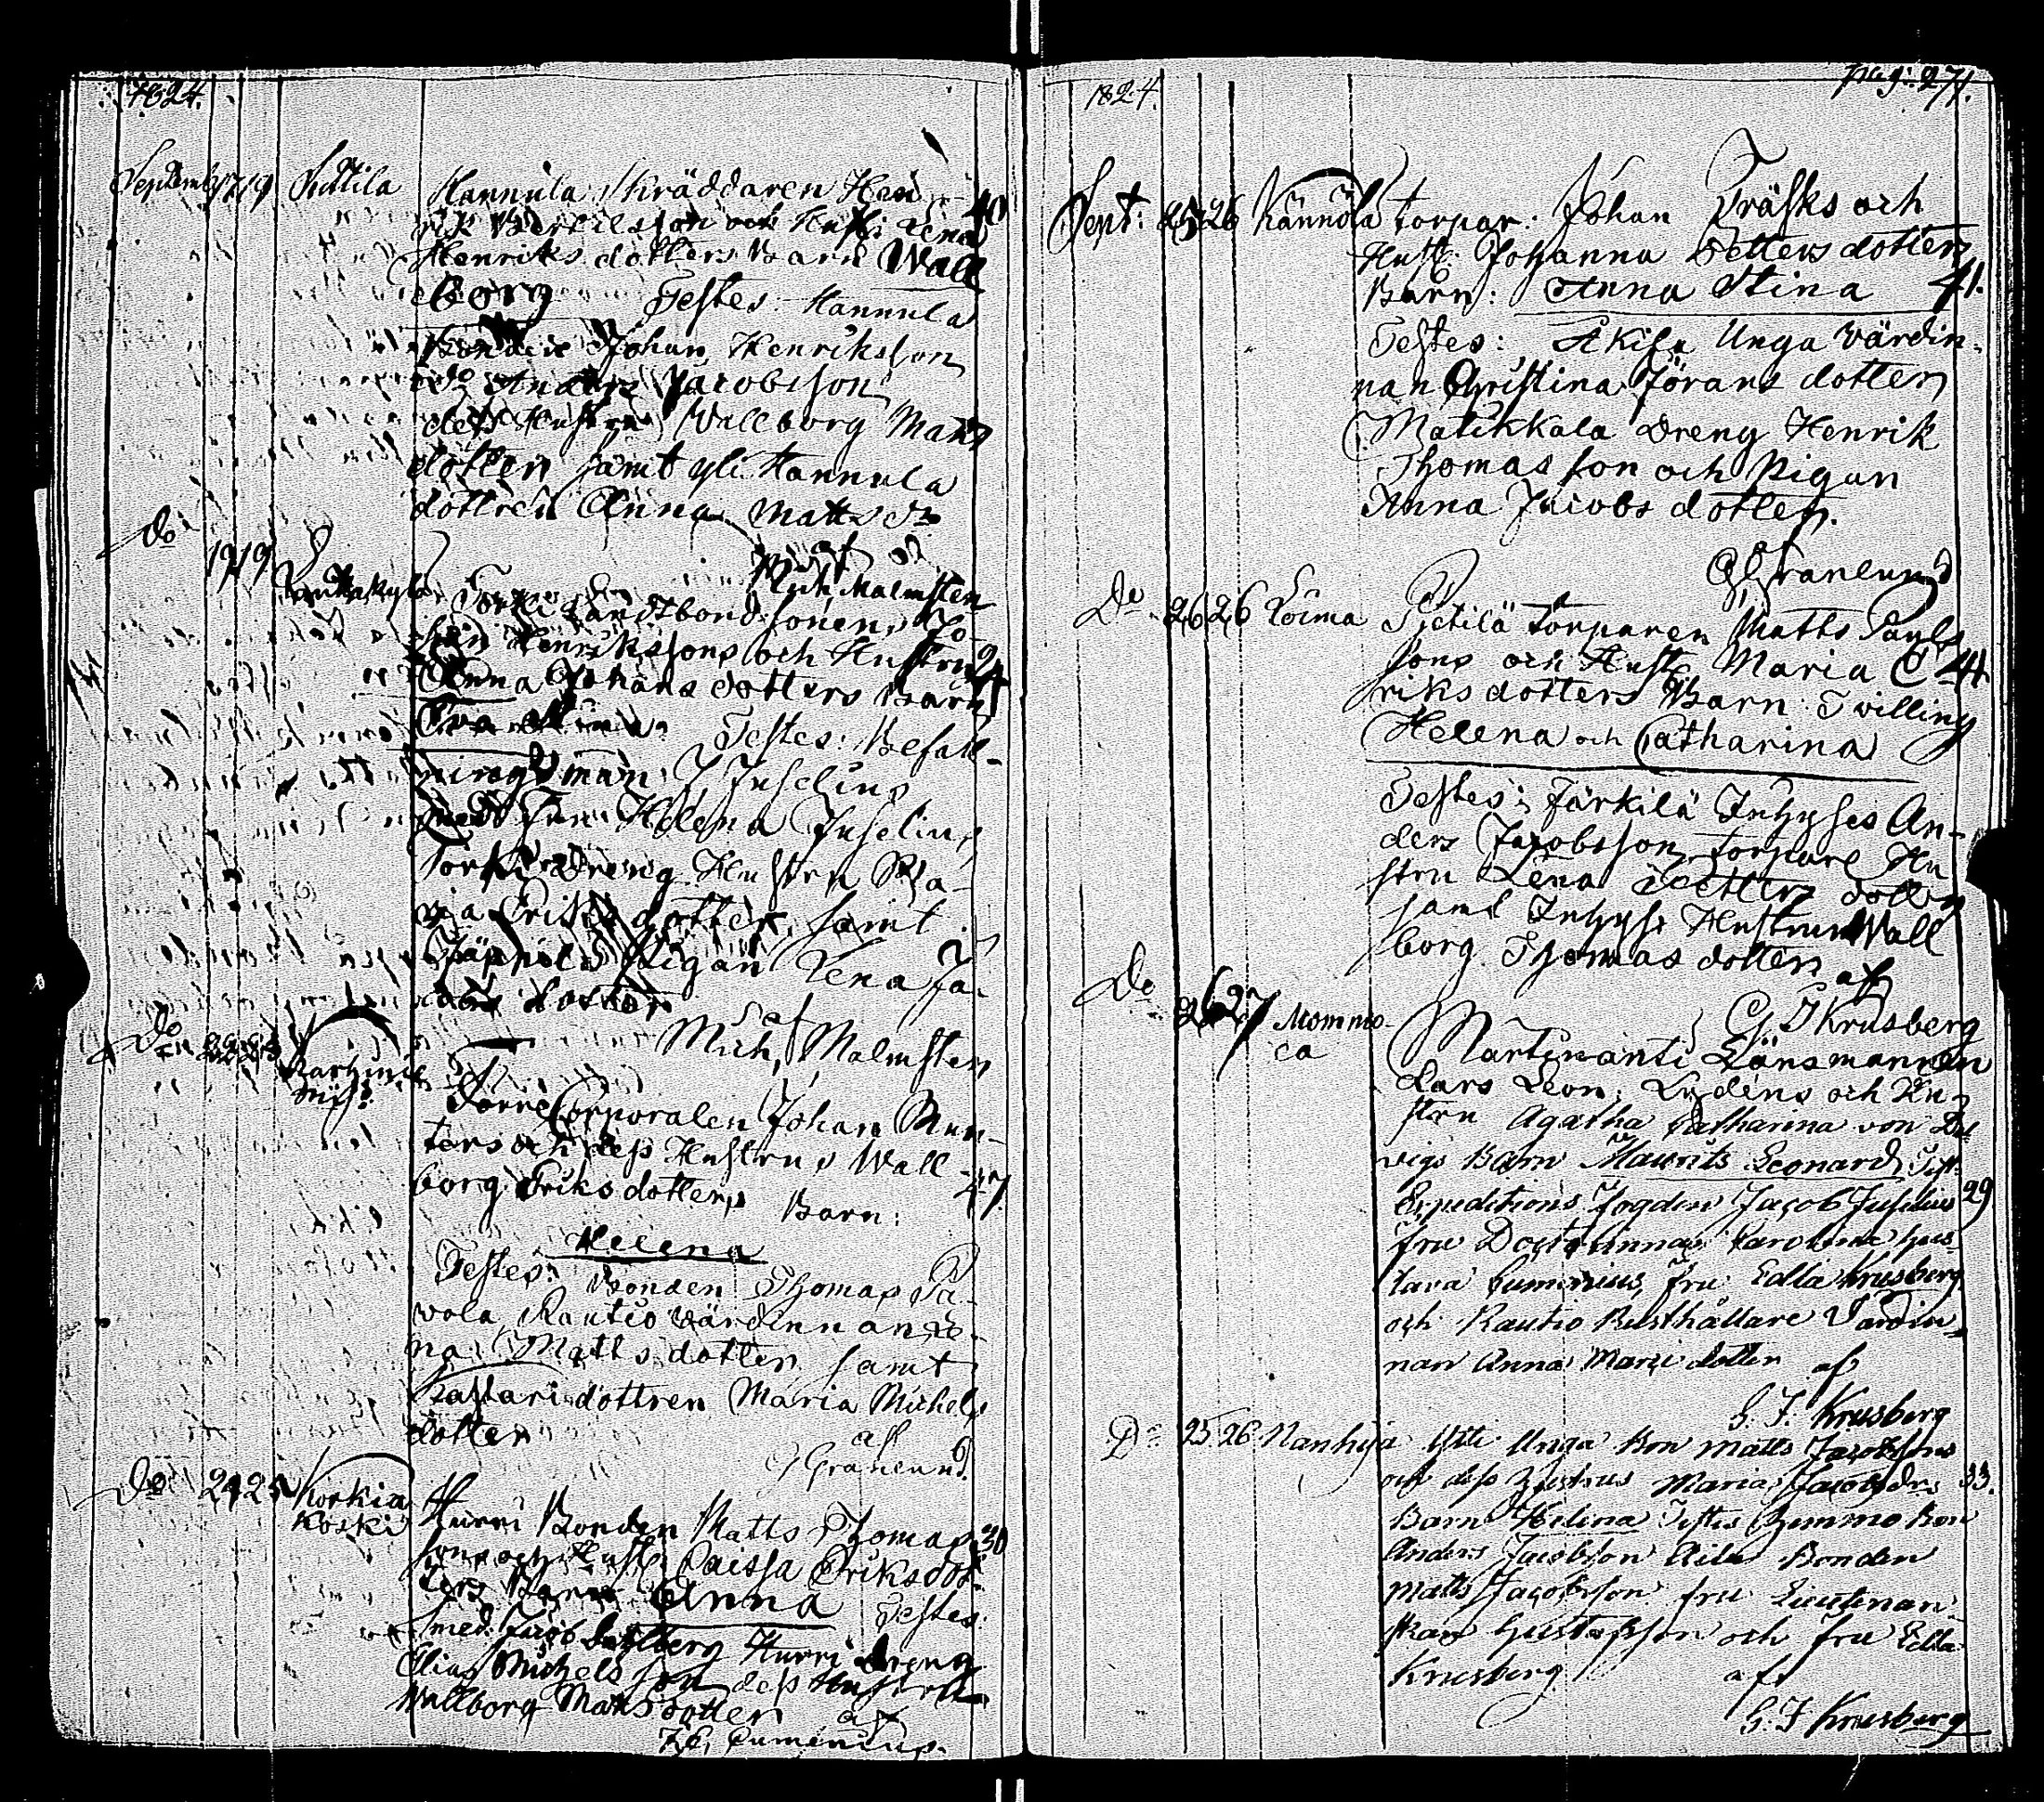 1824.
Septemb 17 19 Suttila Hannula Skräddaren Hen
rik Bertilsson och Hustr Lena 40
Henriks dotters Barn Wall
borg Testes Hannula
Bonden Johan Henriksson
do Anders Jacobsson
dess Hustru Wallborg Matts
dotter samt yli Hannula
dottren Anna Matts dr
af
Do 19 19 Mich Malmsten
Torki Landtbond. sonen Jo-
han Henrikssons och Hustru 24
Anna Johans dotters Barn
Eva Testes: Befall-
ningsman J Juselius
med Fru Helena Juselius
Torki Dreng Hustru Ma-
ria Eriks dotter, samt
Pigan Lena Ja-
cobs dotter
af
Mich, Malmsten
Do Karhinie
mis:
Torre Corporalen Johan Mun-
ters och dess Hustrus Wall-
borg Eriks dotters 27.
Barn:
Helena
Testes: Bonden Thomas Pa-
vola Rautio värdinnan Le-
na Matts dotter samt
Kastari dottren Maria Michels
dotter
af
G Granlund.
Do 24 25 Korkia
koski
Hurri Bonden Matts Thomas 30
sons och Hust: Caissa Eriksdot-
ters Barn Anna Testes
Smed: Jacob Dahlberg Hurri Dreng
Elias Michels son dess Hustru
Wallborg Matts dotter af
Cumenius.
1824. pag: 271.
Sept: 25 26 Kännölä torpar: Johan Träsks och
Hust: Johanna Petters dotters
Barn: Anna Stina 41.
Testes: Äkila Unga värdin-
nan Christina Jörans dotter
Matikkala Dreng Henrik
Thomas son och Pigan
Anna Jacobs dotter.
G Granlund
Do 26 26 Loima Pietilä torparen Matts Pauls
sons och Hust: Maria E 41
riks dotters Barn Twilling
Helena och Catharina
Testes: Färkilä Inhyses An-
ders Jacobsson, torpare Hu
stru Lena Petters dotter
samt Inhyse Hustrun Wall
borg Thomas dotter
af
G. J Krusberg
Do 26 27 Mommo-
la
Martinanti Länsmannen
Lars Leon: Lydéns och Hu-
stru Agatha Catharina von
Barn Maurits Leonard, Test:
Expeditions Fogden Jacob Juselius 29
fru Doctorinnan Carolina Gus-
tava Cumenius, Fru: Edla Krusberg
och Rautio Rusthållare Värdin-
nan Anna Maria dotter af
G. J. Krusberg
Do 25. 26 Nanhia Ytti Unga Bon Matts Jacobsons
och dess Hustrus Maria Jacobsdr: 33.
Barn Helena Testes Bon
Anders Jacobsson Äilä Bonden
Matts Jacobsson fru Lieutenan-
skan Gustafsson och fru Edla
Krusberg af
G. J Krusberg